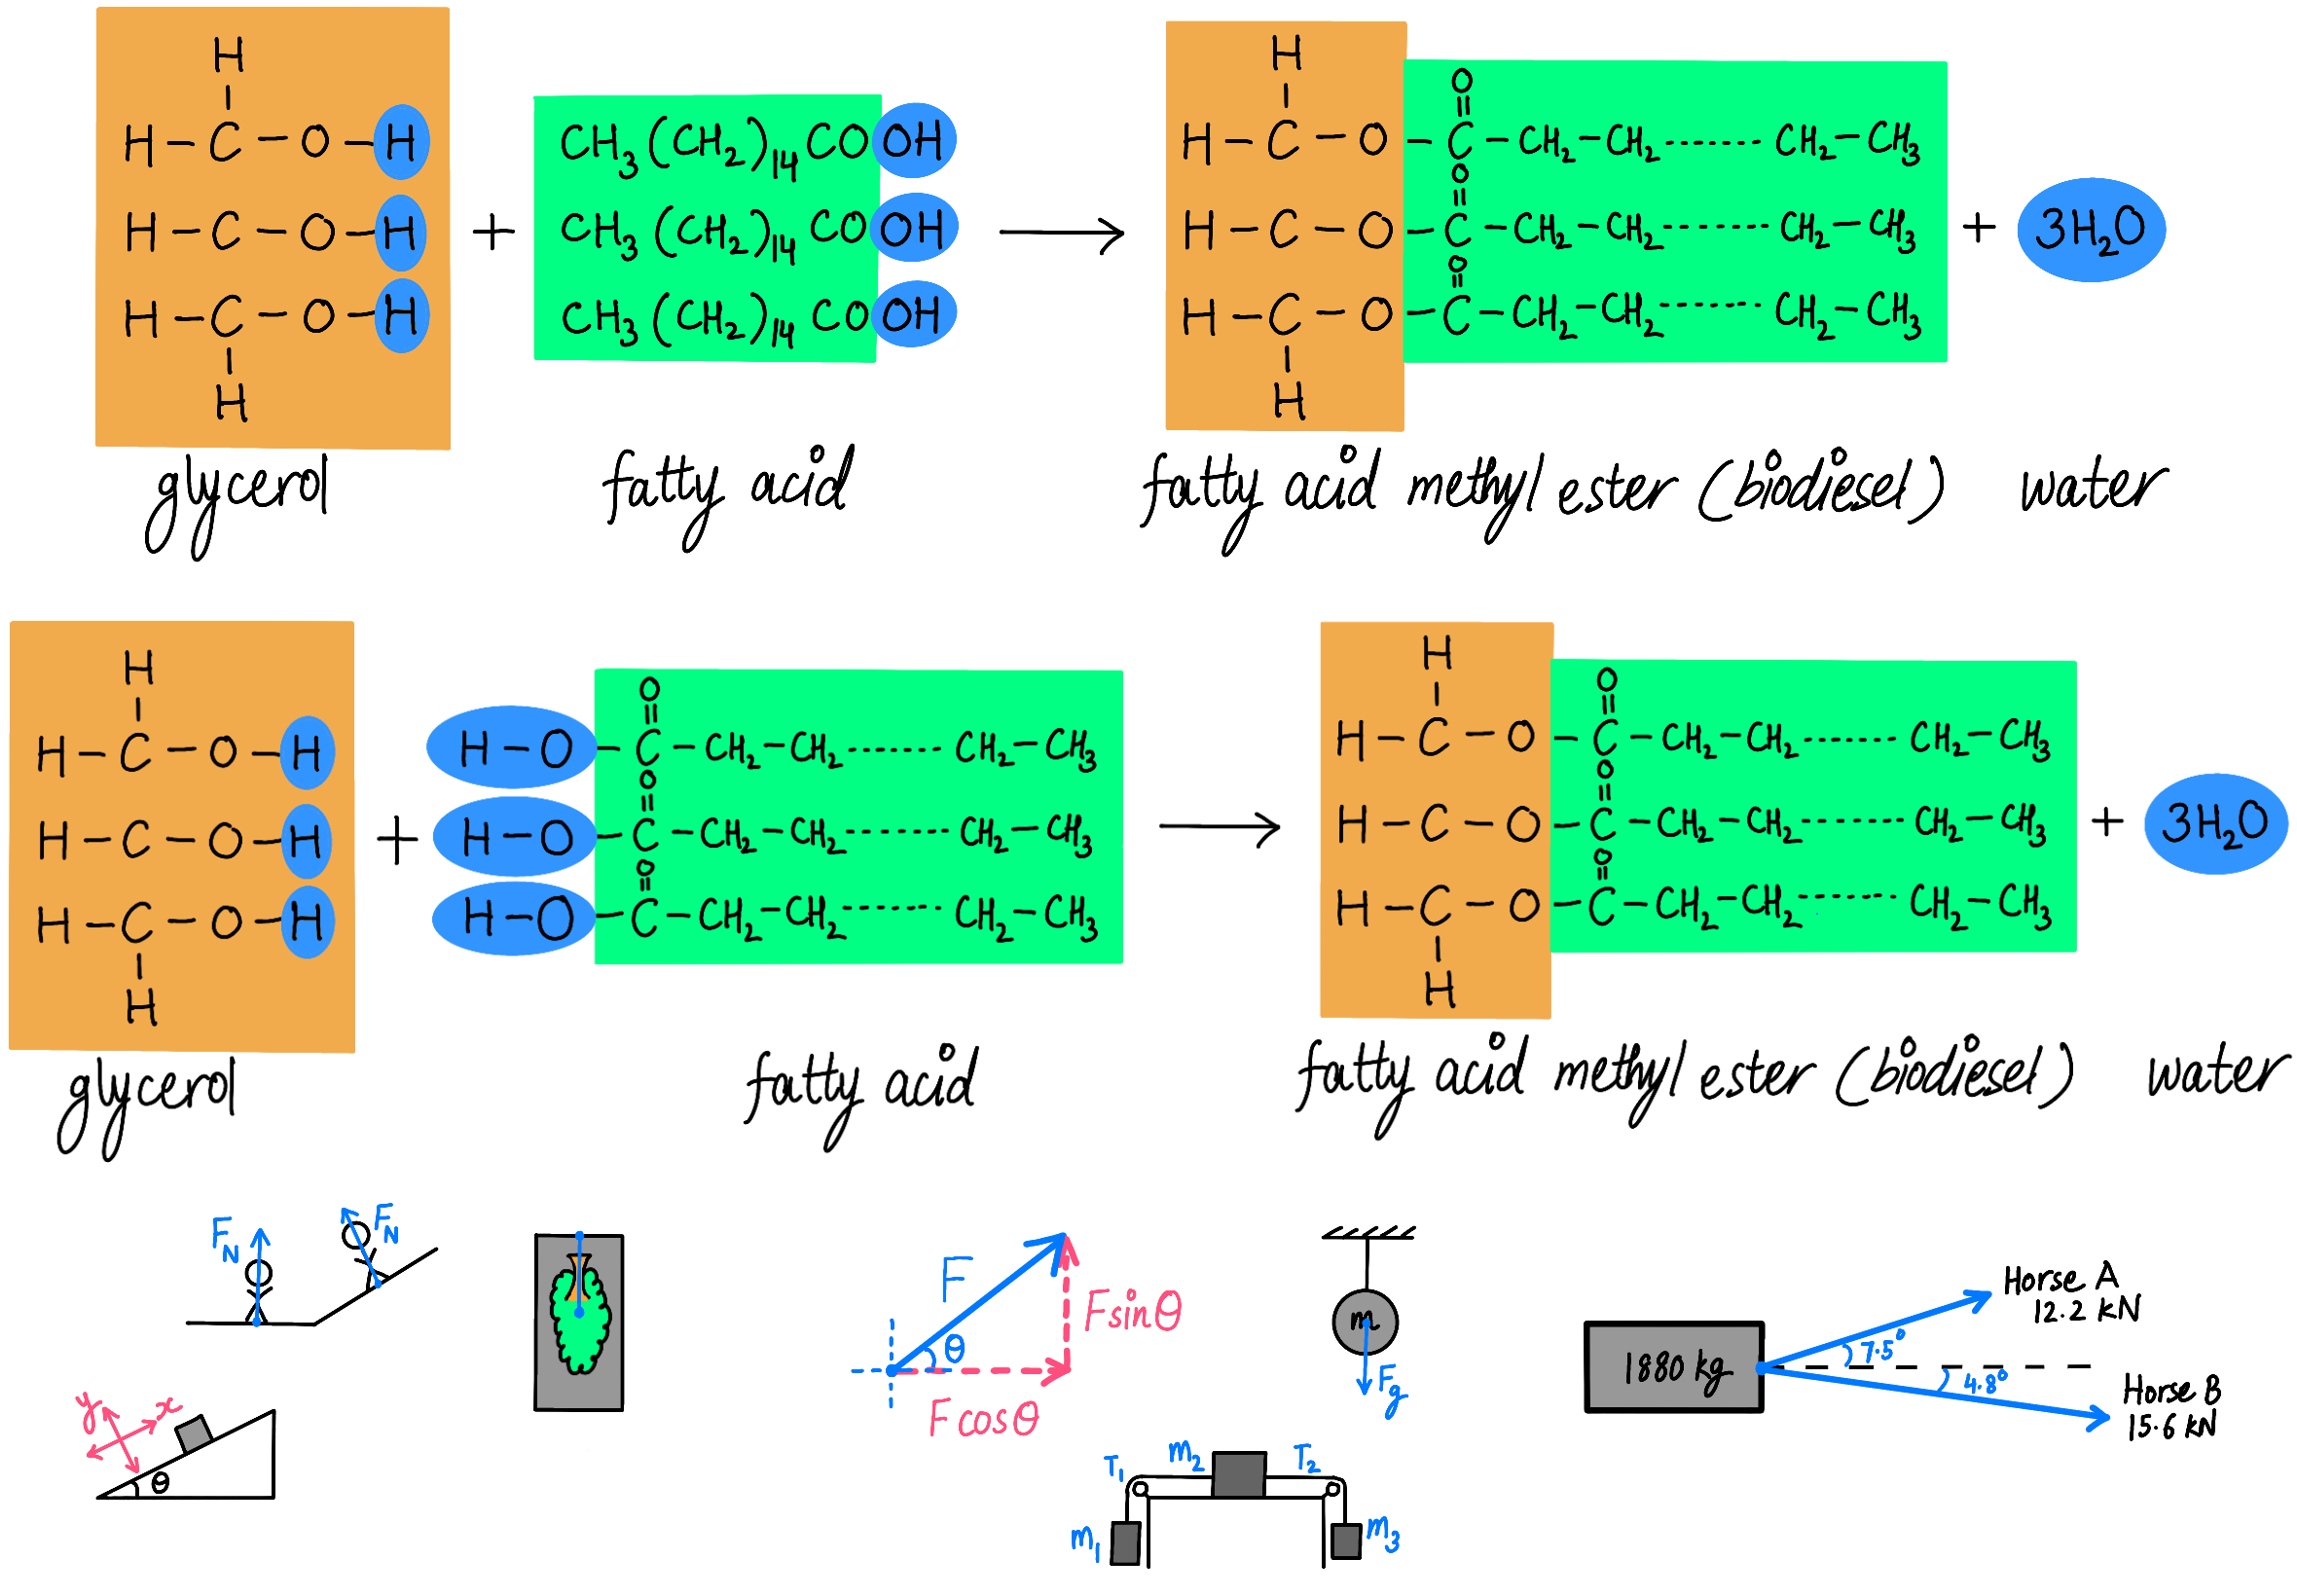 H
H-C-O-H
H-C-O-H
H-C-O-H
H
glycerol
+
CH₃(CH₂)₁₄COOH
CH₃(CH₂)₁₄COOH
CH₃(CH₂)₁₄COOH
fatty acid
→
H
O O O
H-C-O-C-CH₂-CH₂------CH₂-CH₃
H-C-O-C-CH₂-CH₂------CH₂-CH₃
H-C-O-C-CH₂-CH₂------CH₂-CH₃
H
fatty acid methyl ester (biodiesel)
+
3H₂O
water
H
H-C-O-H
H-C-O-H
H-C-O-H
H
glycerol
+
O O O
H-O-C-CH₂-CH₂------CH₂-CH₃
H-O-C-CH₂-CH₂------CH₂-CH₃
H-O-C-CH₂-CH₂------CH₂-CH₃
fatty acid
→
H
O O O
H-C-O-C-CH₂-CH₂------CH₂-CH₃
H-C-O-C-CH₂-CH₂------CH₂-CH₃
H-C-O-C-CH₂-CH₂------CH₂-CH₃
H
fatty acid methyl ester (biodiesel)
+
3H₂O
water
F_N
F_N
y x
θ
F
θ
F sinθ
F cosθ
m
F_g
T₁ m₂ T₂
m₁ m₃
1880 kg
Horse A
12.2 kN
7.5°
4.8°
Horse B
15.6 kN